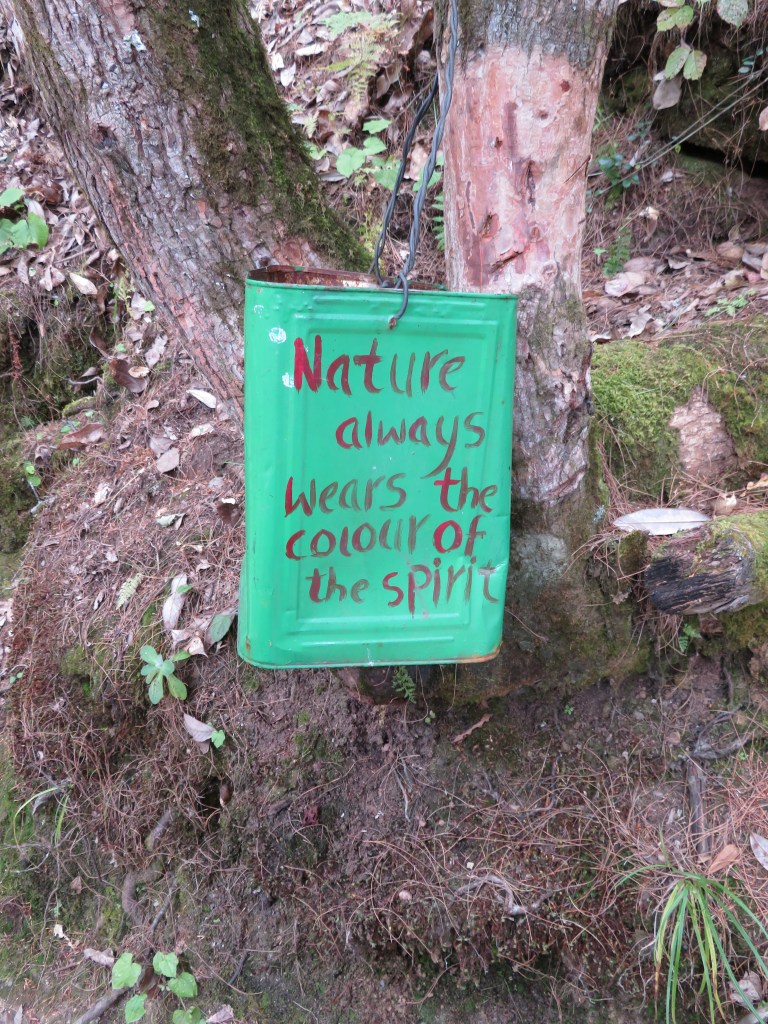 Nature
always
wears the
colour of
the spirit